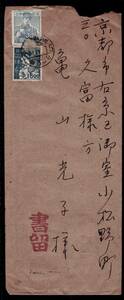 京都市右京区御室小松野町
三〇 久富様方
亀山光子様
書留